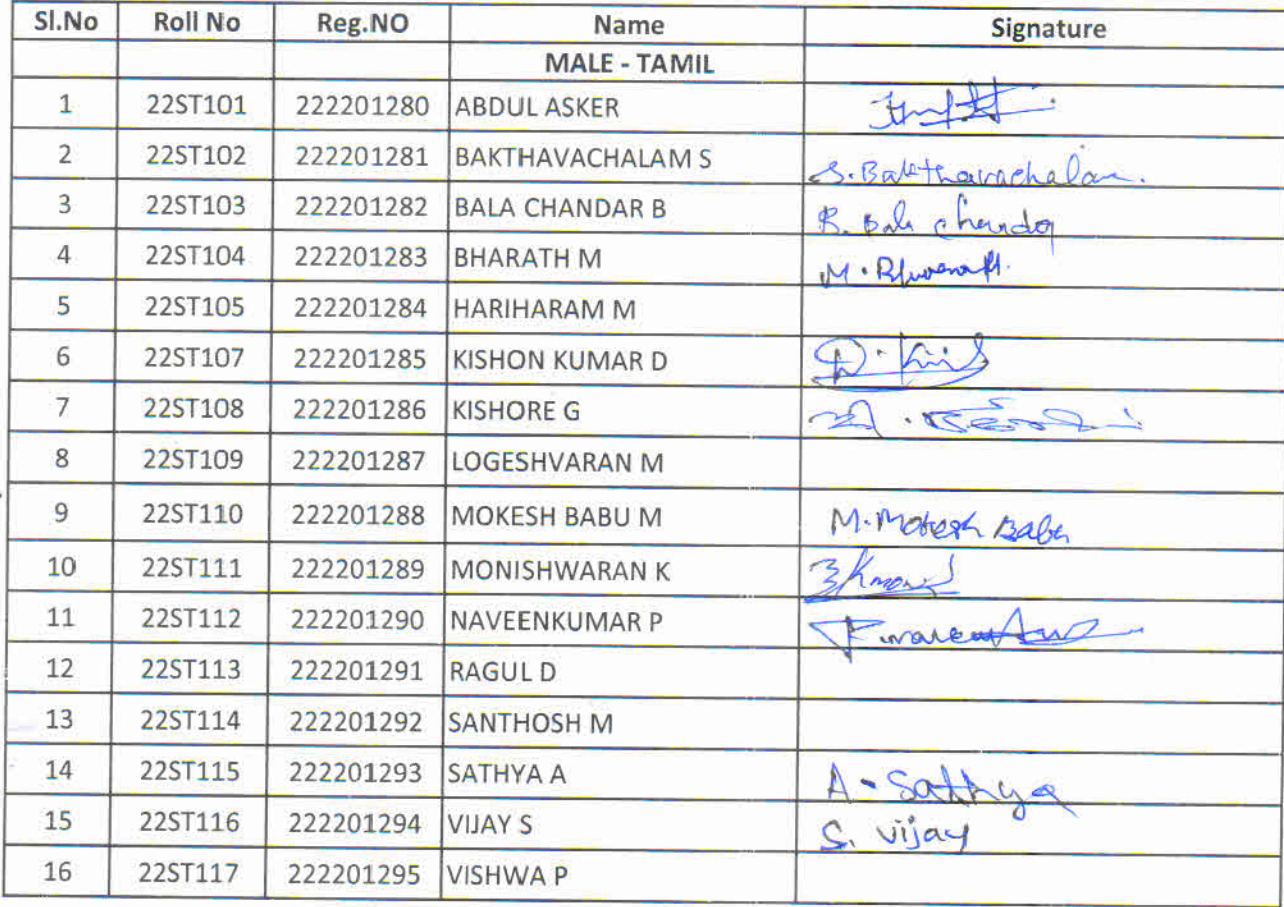 Sl.No Roll No Reg.NO Name Signature
MALE - TAMIL
1 22ST101 222201280 ABDUL ASKER
2 22ST102 222201281 BAKTHAVACHALAM S S. Bakthavachalam.
3 22ST103 222201282 BALA CHANDAR B B. Bala chandar
4 22ST104 222201283 BHARATH M M.
5 22ST105 222201284 HARIHARAM M
6 22ST107 222201285 KISHON KUMAR D D.
7 22ST108 222201286 KISHORE G
8 22ST109 222201287 LOGESHVARAN M
9 22ST110 222201288 MOKESH BABU M M. Mokesh Babu
10 22ST111 222201289 MONISHWARAN K
11 22ST112 222201290 NAVEENKUMAR P
12 22ST113 222201291 RAGUL D
13 22ST114 222201292 SANTHOSH M
14 22ST115 222201293 SATHYA A A - Sathya
15 22ST116 222201294 VIJAY S S. vijay
16 22ST117 222201295 VISHWA P